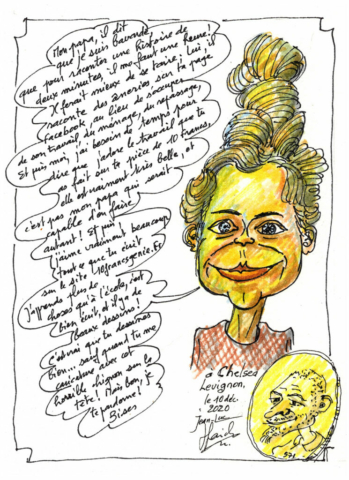 Mon papa, il dit
que je suis bavarde,
que pour raconter une histoire de
deux minutes, il me faut une heure!
Il ferait mieux de se taire; lui, il
raconte des âneries sur ta page
Facebook, au lieu de s'occuper
de son travail du ménage, du repassage,
et puis moi, j'ai besoin de temps pour
dire que j'adore le travail que tu
as fait sur ta pièce de 10 francs,
elle est vraiment très belle, et
c'est pas mon papa qui serait
capable d'en faire
autant! Et puis j'
aime vraiment beaucoup
tout ce que tu écris
sur le site 10francsgenie.Fr
j'apprends plus de
choses qu'à l'école, c'est
bien écrit, et il y a de
beaux dessins!
C'est vrai que tu dessines
bien... sauf quand tu me
caricature avec cet
horrible chignon sur la
tête! Mais bon, je
te pardonne!
Bises
à Chelsea
Levignon,
le 10 déc.
2020
Jean-Luc